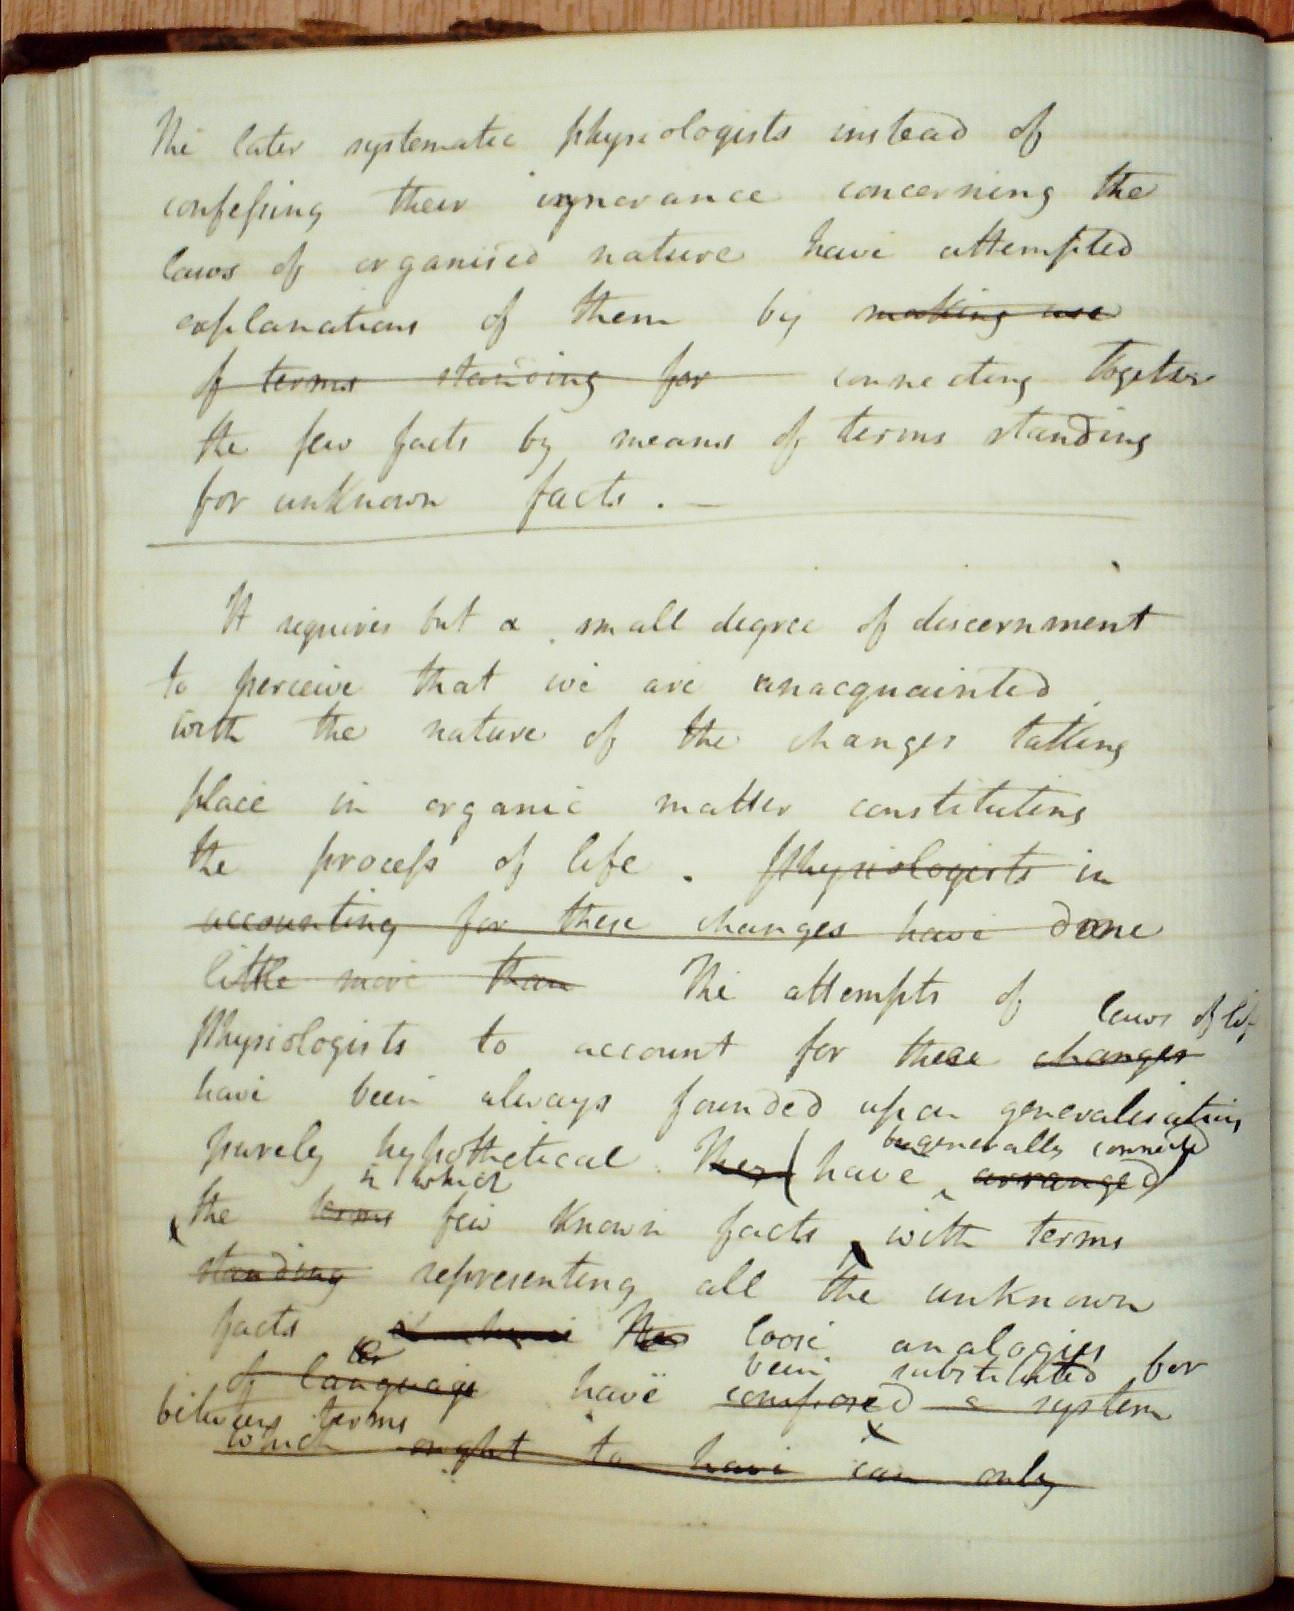 The later systematic physiologists instead of
confessing their ignorance concerning the
laws of organised nature have attempted
explanations of them by making use
of terms standing for connecting together
the few facts by means of terms standing
for unknown facts. —
It requires but a small degree of discernment
to perceive that we are unacquainted
with the nature of the changes takking
place in organic matter constituting
the process of life. Physiologists in
accounting for these changes have done
little more than The attempts of
laws of life
Physiologists to account for these changes
have been always founded upon generalisations
purely hypothetical. They have arranged
generally connected
in which
the terms few known facts with terms
standing representing all the unknown
facts The loose analogies
of language have composed a system
been substituted for
between terms
which ought to have can only